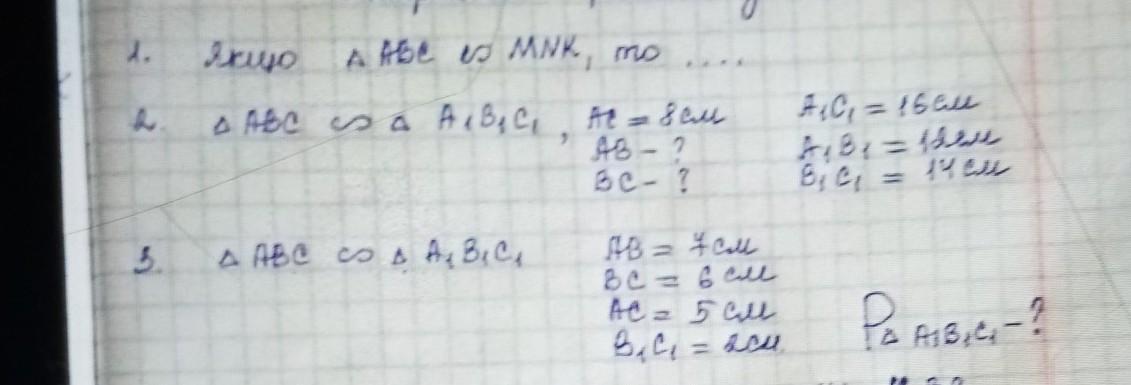 1. Якщо △ ABC ∽ MNK, то ....
2. △ ABC ∽ △ A₁B₁C₁, AC = 8 см A₁C₁ = 16 см
AB - ? A₁B₁ = 12 см
BC - ? B₁C₁ = 14 см
3. △ ABC ∽ △ A₁B₁C₁ AB = 7 см
BC = 6 см
AC = 5 см
B₁C₁ = 2 см. P△ A₁B₁C₁ - ?